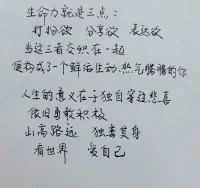 生命力就是三点：
打扮欲 分享欲 表达欲
当这三者交织在一起
便构成了一个鲜活生动、热气腾腾的你
人生的意义在于独自穿过悲喜
依旧勇敢积极
山高路远 独善其身
有世界 爱自己